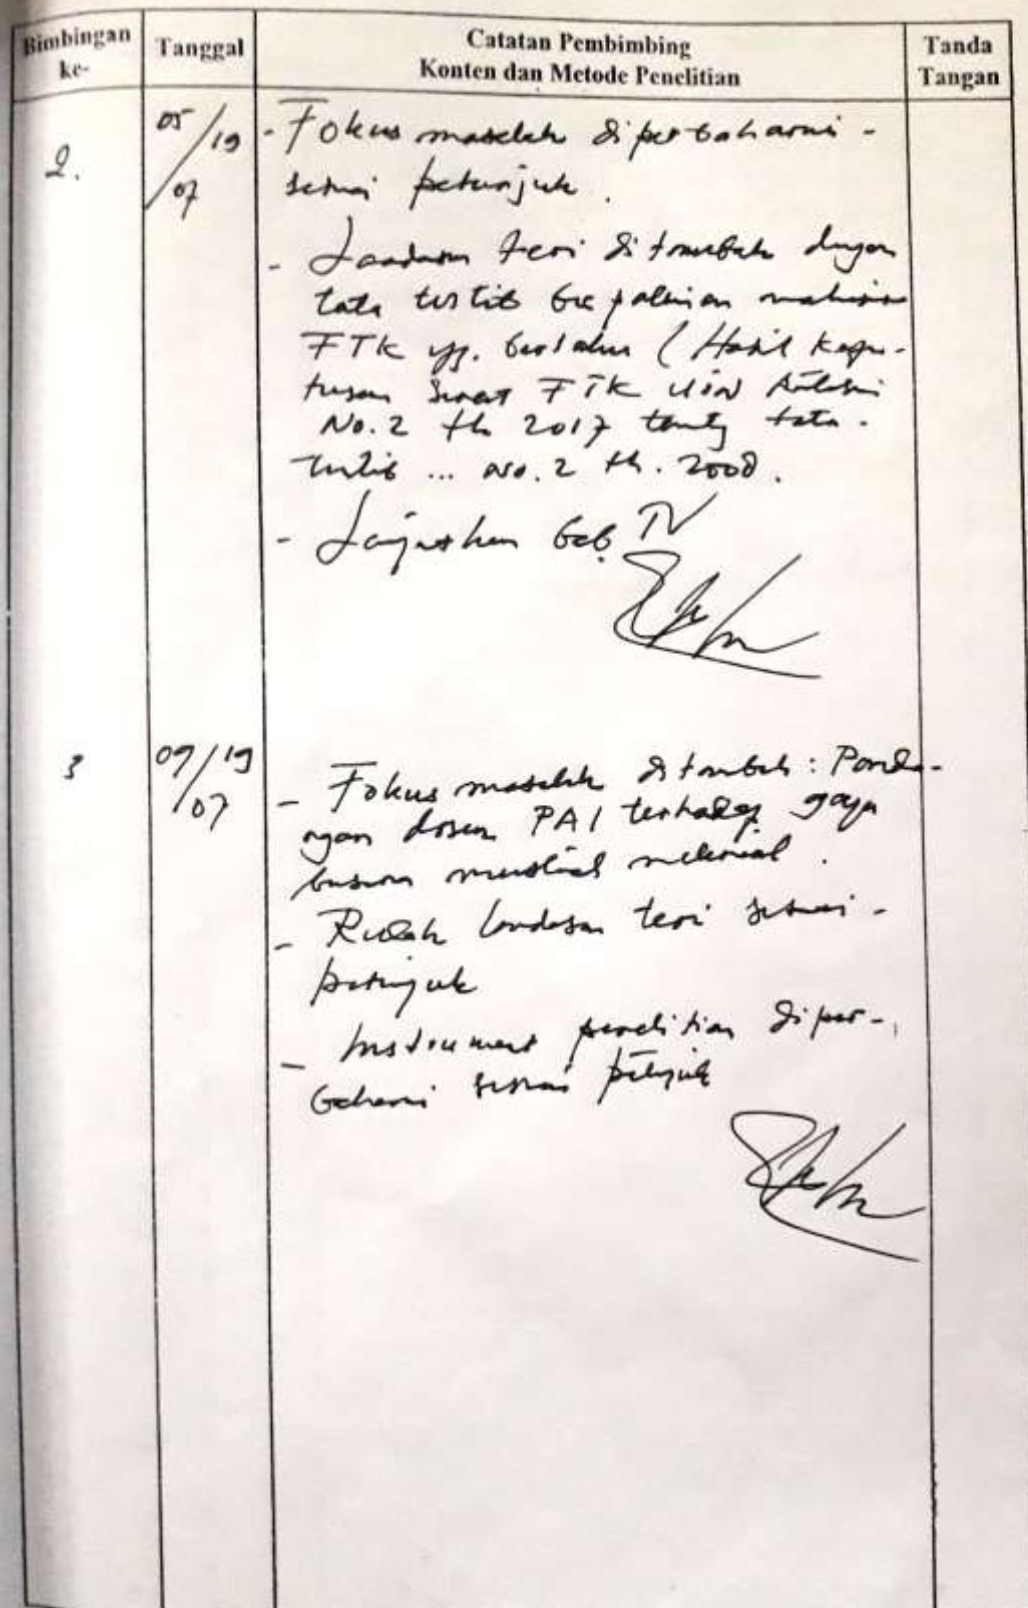 Bimbingan ke-
Tanggal
Catatan Pembimbing
Konten dan Metode Penelitian
Tanda Tangan
2.
05/07/19
- Fokus masalah diperbaharui -
sesuai petunjuk.
- Landasan teori ditambah dengan
tata tertib berpakaian mahasiswa
FTK yg. berlaku (Hasil Kepu-
tusan Senat FTK UIN Antasari
No. 2 th 2017 tentg tata -
tertib ... No. 2 th. 2008.
- Lanjutkan bab IV
3
09/07/19
- Fokus masalah ditambah: Panda-
ngan dosen PAI terhadap gaya
busana muslimah milenial.
- Rubah landasan teori sesuai -
petunjuk
- Instrument penelitian diper-
baharui sesuai petunjuk